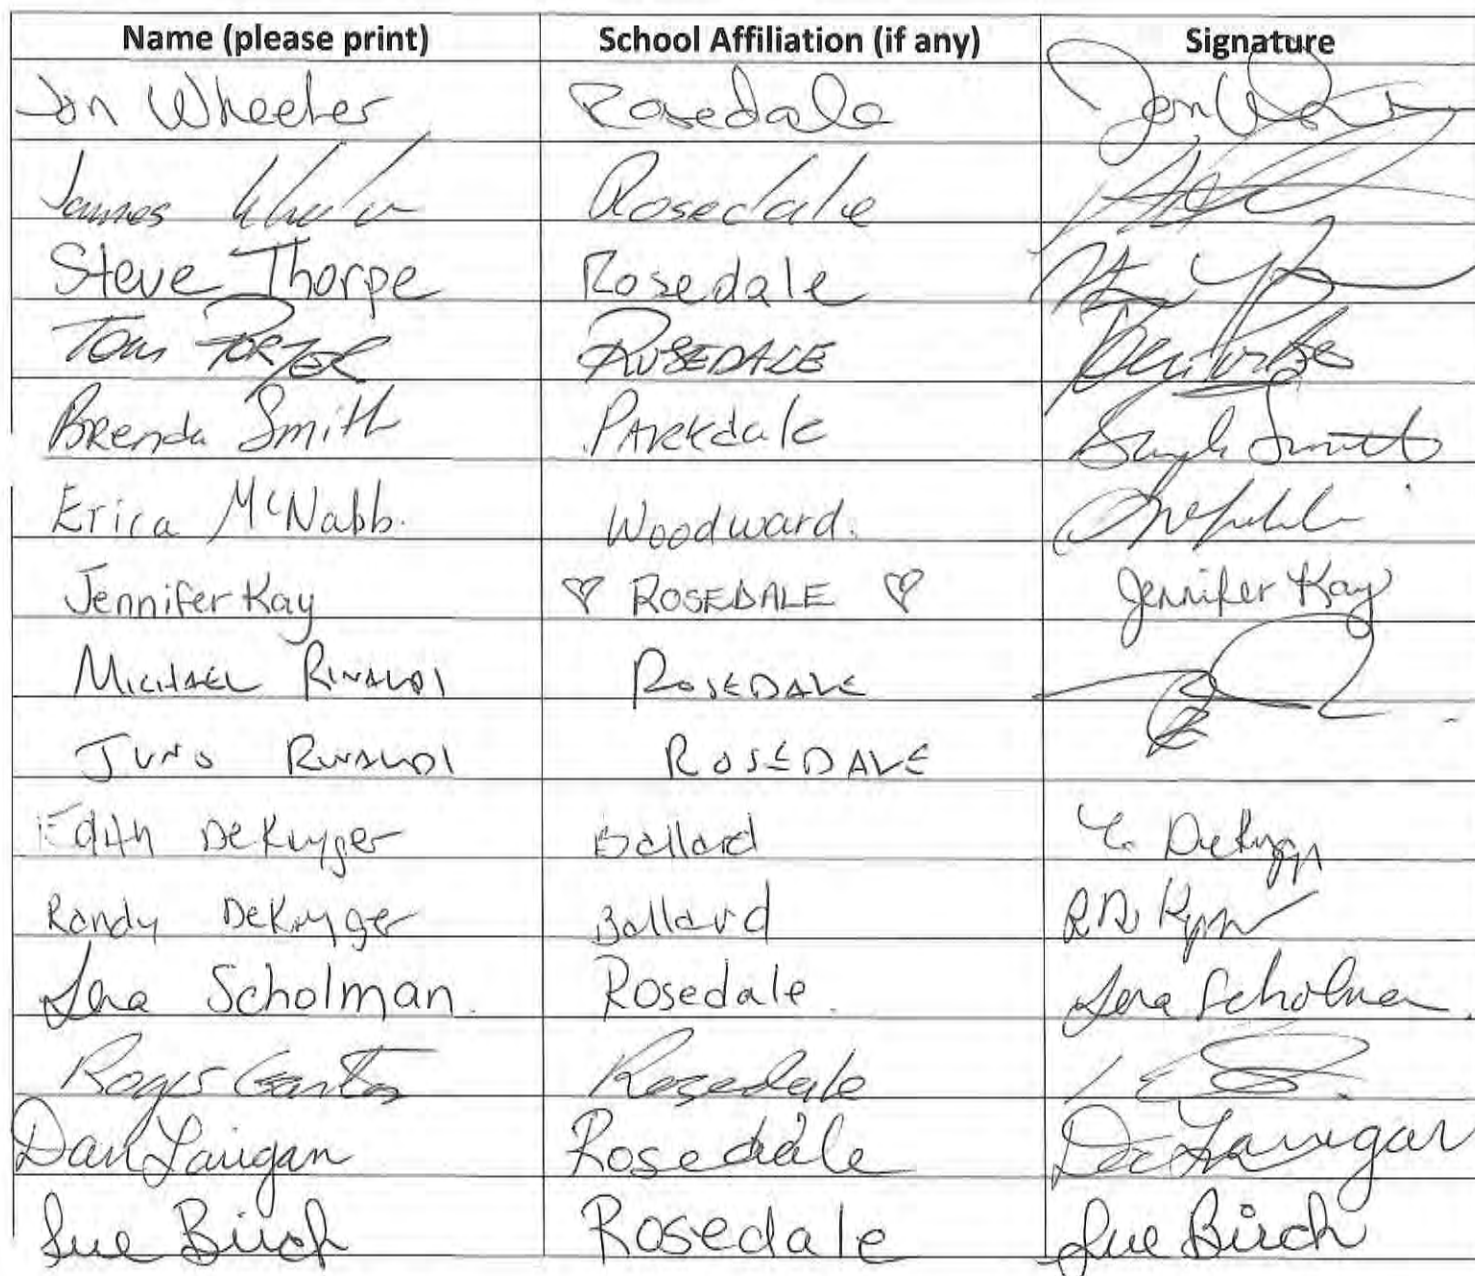 Name (please print) School Affiliation (if any) Signature
Jon Wheeler Rosedale Jon
James Rosedale
Steve Thorpe Rosedale
Tom PORTER ROSEDALE
Brenda Smith Parkdale Smith
Erica McNabb. Woodward.
Jennifer Kay ♡ ROSEDALE ♡ Jennifer Kay
MICHAEL RINALDI ROSEDALE
JUNO RINALDI ROSEDALE
Edith DeKuyger Ballard
Randy DeKuyger Ballard
Lena Scholman. Rosedale. Lena Scholman.
Roger Rosedale
Dan Lanigan Rosedale Lanigan
Sue Birch Rosedale Sue Birch